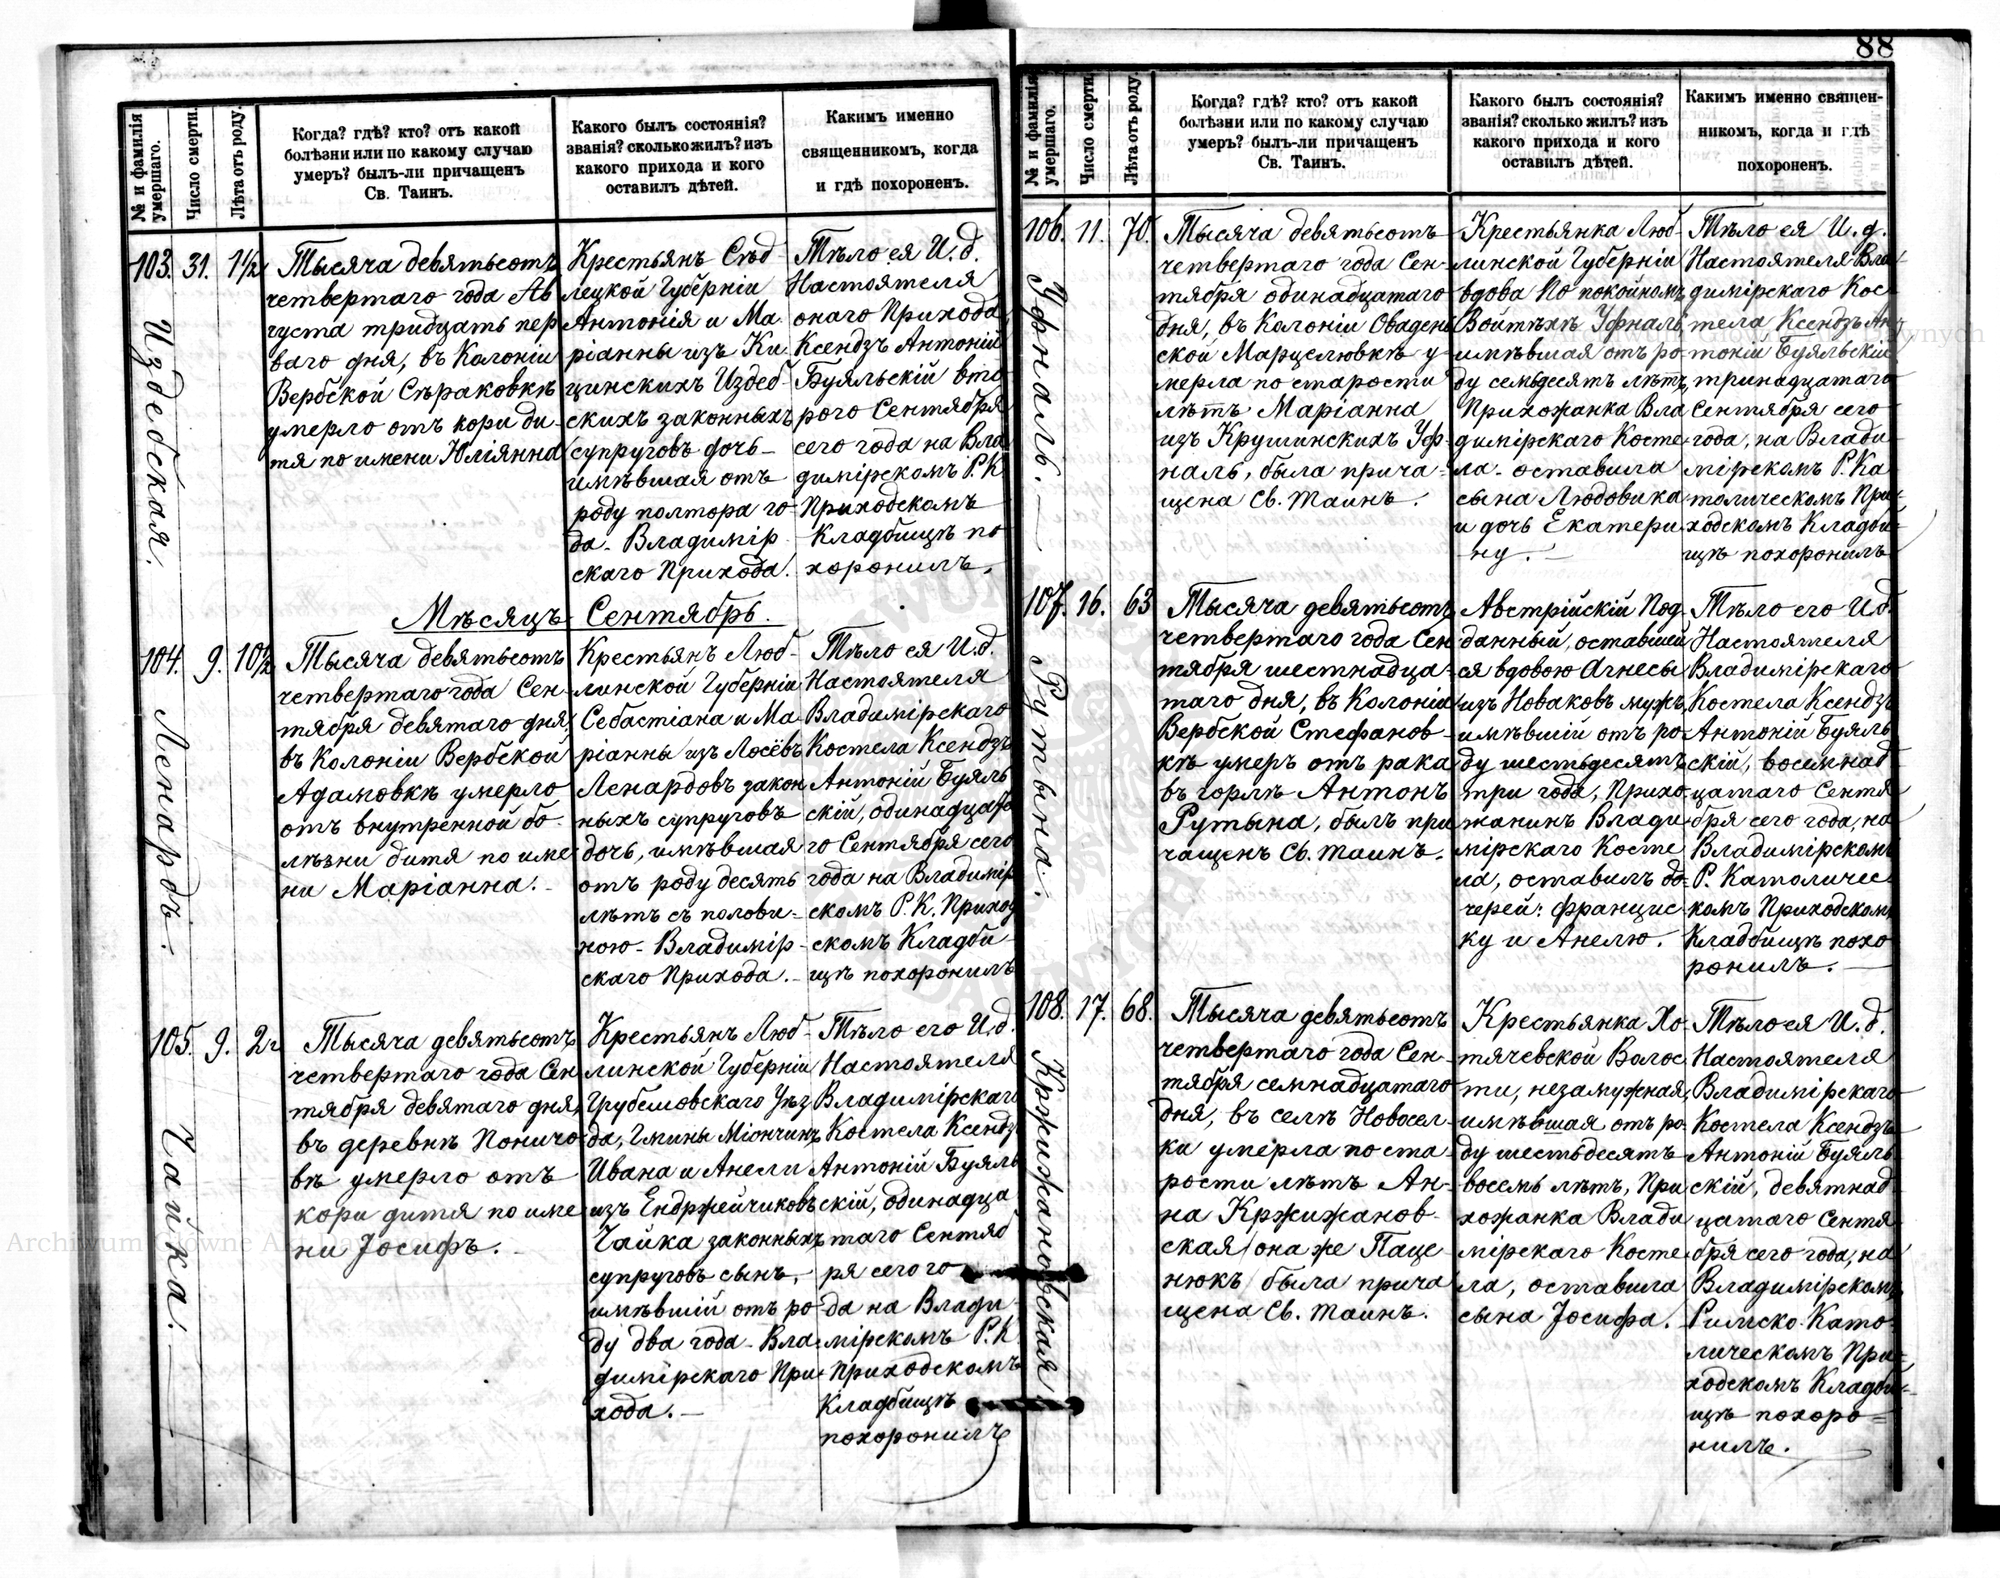 88
№ и фамилія умершаго.
Число смерти.
Лѣта отъ роду.
Когда? гдѣ? кто? отъ какой
болѣзни или по какому случаю
умеръ? былъ-ли причащенъ
Св. Таинъ.
Какого былъ состоянія?
званія? сколько жилъ? изъ
какого прихода и кого
оставилъ дѣтей.
Какимъ именно
священникомъ, когда
и гдѣ похороненъ.
103.
Издебская.
31.
1½
Тысяча девятьсотъ
четвертаго года Ав
густа тридцать пер
ваго дня, въ Колоніи
Вербской Сѣраковкѣ
умерло отъ кори ди-
тя по имени Юліянна
Крестьянъ Сѣд-
лецкой Губерніи
Антонія и Ма-
ріанны изъ Ки
цинскихъ Издеб-
скихъ законныхъ
супруговъ дочь-
имѣвшая отъ
роду полтора го
да- Владимір
скаго Прихода.
Тѣло ея И. д.
Настоятеля
онаго Прихода
Ксендзъ Антоній
Буяльскій вто
рого Сентября
сего года на Вла
димірскомъ Р. К.
Приходскомъ
Кладбищѣ по
хоронилъ.
Мѣсяцъ Сентябрь.
104.
Ленардъ.
9.
10½
Тысяча девятьсотъ
четвертаго года Сен-
тября девятаго дня,
въ Колоніи Вербской
Адамовкѣ умерло
отъ внутренной бо-
лѣзни дитя по име
ни Маріанна.
Крестьянъ Люб-
линской Губерніи
Себастіана и Ма-
ріанны изъ Лосёвъ
Ленардовъ закон
ныхъ супруговъ
дочь, имѣвшая
отъ роду десять
лѣтъ съ полови-
ною- Владимір-
скаго Прихода.
Тѣло ея И. д.
Настоятеля
Владимірскаго
Костела Ксендзъ
Антоній Буяль
скій, одинадцата
го Сентября сего
года на Владимір
скомъ Р. К. Приход
скомъ Кладби-
щѣ похоронилъ
105.
Чайка.
9.
2г
Тысяча девятьсотъ
четвертаго года Сен
тября девятаго дня,
въ деревнѣ Поничо-
вѣ умерло отъ
кори дитя по име
ни Іосифъ.
Крестьянъ Люб-
линской Губерніи
Грубешовскаго Уѣз
да, Гмины Міончинъ
Ивана и Анели
изъ Ендржейчиковъ
Чайка законныхъ
супруговъ сынъ,
имѣвшій отъ ро-
ду два года- Вла-
димірскаго При-
хода.
Тѣло его И. д.
Настоятеля
Владимірскаго
Костела Ксендзъ
Антоній Буяль
скій, одинадца
таго Сентяб
ря сего го
да на Влади-
мірскомъ Р. К
Приходскомъ
Кладбищѣ
похоронилъ
№ и фамилія умершаго.
Число смерти.
Лѣта отъ роду.
Когда? гдѣ? кто? отъ какой
болѣзни или по какому случаю
умеръ? былъ-ли причащенъ
Св. Таинъ.
Какого былъ состоянія?
званія? сколько жилъ? изъ
какого прихода и кого
оставилъ дѣтей.
Какимъ именно священ-
никомъ, когда и гдѣ
похороненъ.
106.
Уфналь.
11.
70.
Тысяча девятьсотъ
четвертаго года Сен-
тября одинадцатаго
дня, въ Колоніи Оваден
ской Марцелювкѣ у-
мерла по старости
лѣтъ Маріанна
изъ Крушинскихъ Уф-
наль, была прича-
щена Св. Таинъ.
Крестьянка Люб-
линской Губерніи
вдова По покойномъ
Войтѣхѣ Уфналь
имѣвшая отъ ро-
ду семьдесятъ лѣтъ,
Прихожанка Вла
димірскаго Косте-
ла- оставила
сына Людовика
и дочь Екатери
ну.
Тѣло ея И. д.
Настоятеля Вла-
димірскаго Кос
тела Ксендзъ Ан
тоній Буяльскій
тринадцатаго
Сентября сего
года, на Влади-
мірскомъ Р. Ка
толическомъ При-
ходскомъ Кладби-
щѣ похоронилъ
107.
Рутына.
16.
63
Тысяча девятьсотъ
четвертаго года Сен
тября шестнадца-
таго дня, въ Колоніи
Вербской Стефанов-
кѣ умеръ отъ рака
въ горлѣ Антонъ
Рутына, былъ при
чащенъ Св. Таинъ.
Австрійскій Под-
данный, оставшей
ся вдовою Агнесы
изъ Новаковъ мужъ,
имѣвшій отъ ро-
ду шестьдесятъ
три года, Прихо
жанинъ Влади
мірскаго Косте
ла, оставилъ до-
черей: Францис-
ку и Анелю.
Тѣло его И. д.
Настоятеля
Владимірскаго
Костела Ксендзъ
Антоній Буяль
скій, восемнад
цатаго Сентя
бря сего года, на
Владимірскомъ
Р. Католичес
комъ Приходскомъ
Кладбищѣ похо
ронилъ.
108.
Кржижановская
17.
68.
Тысяча девятьсотъ
четвертаго года Сен-
тября семнадцатаго
дня, въ селѣ Новосел-
ки умерла по ста-
рости лѣтъ Ан-
на Кржижанов-
ская /она же Паце-
нюкъ/ была прича
щена Св. Таинъ.
Крестьянка Хо
тячевской Волос
ти, незамужная,
имѣвшая отъ ро-
ду шестьдесятъ
восемь лѣтъ, При
хожанка Влади
мірскаго Косте
ла, оставила
сына Іосифа.
Тѣло ея И. д.
Настоятеля
Владимірскаго
Костела Ксендзъ
Антоній Буяль
скій, девятнад
цатаго Сентя
бря сего года, на
Владимірскомъ
Римско-Като-
лическомъ При-
ходскомъ Кладби-
щѣ похоро-
нилъ.